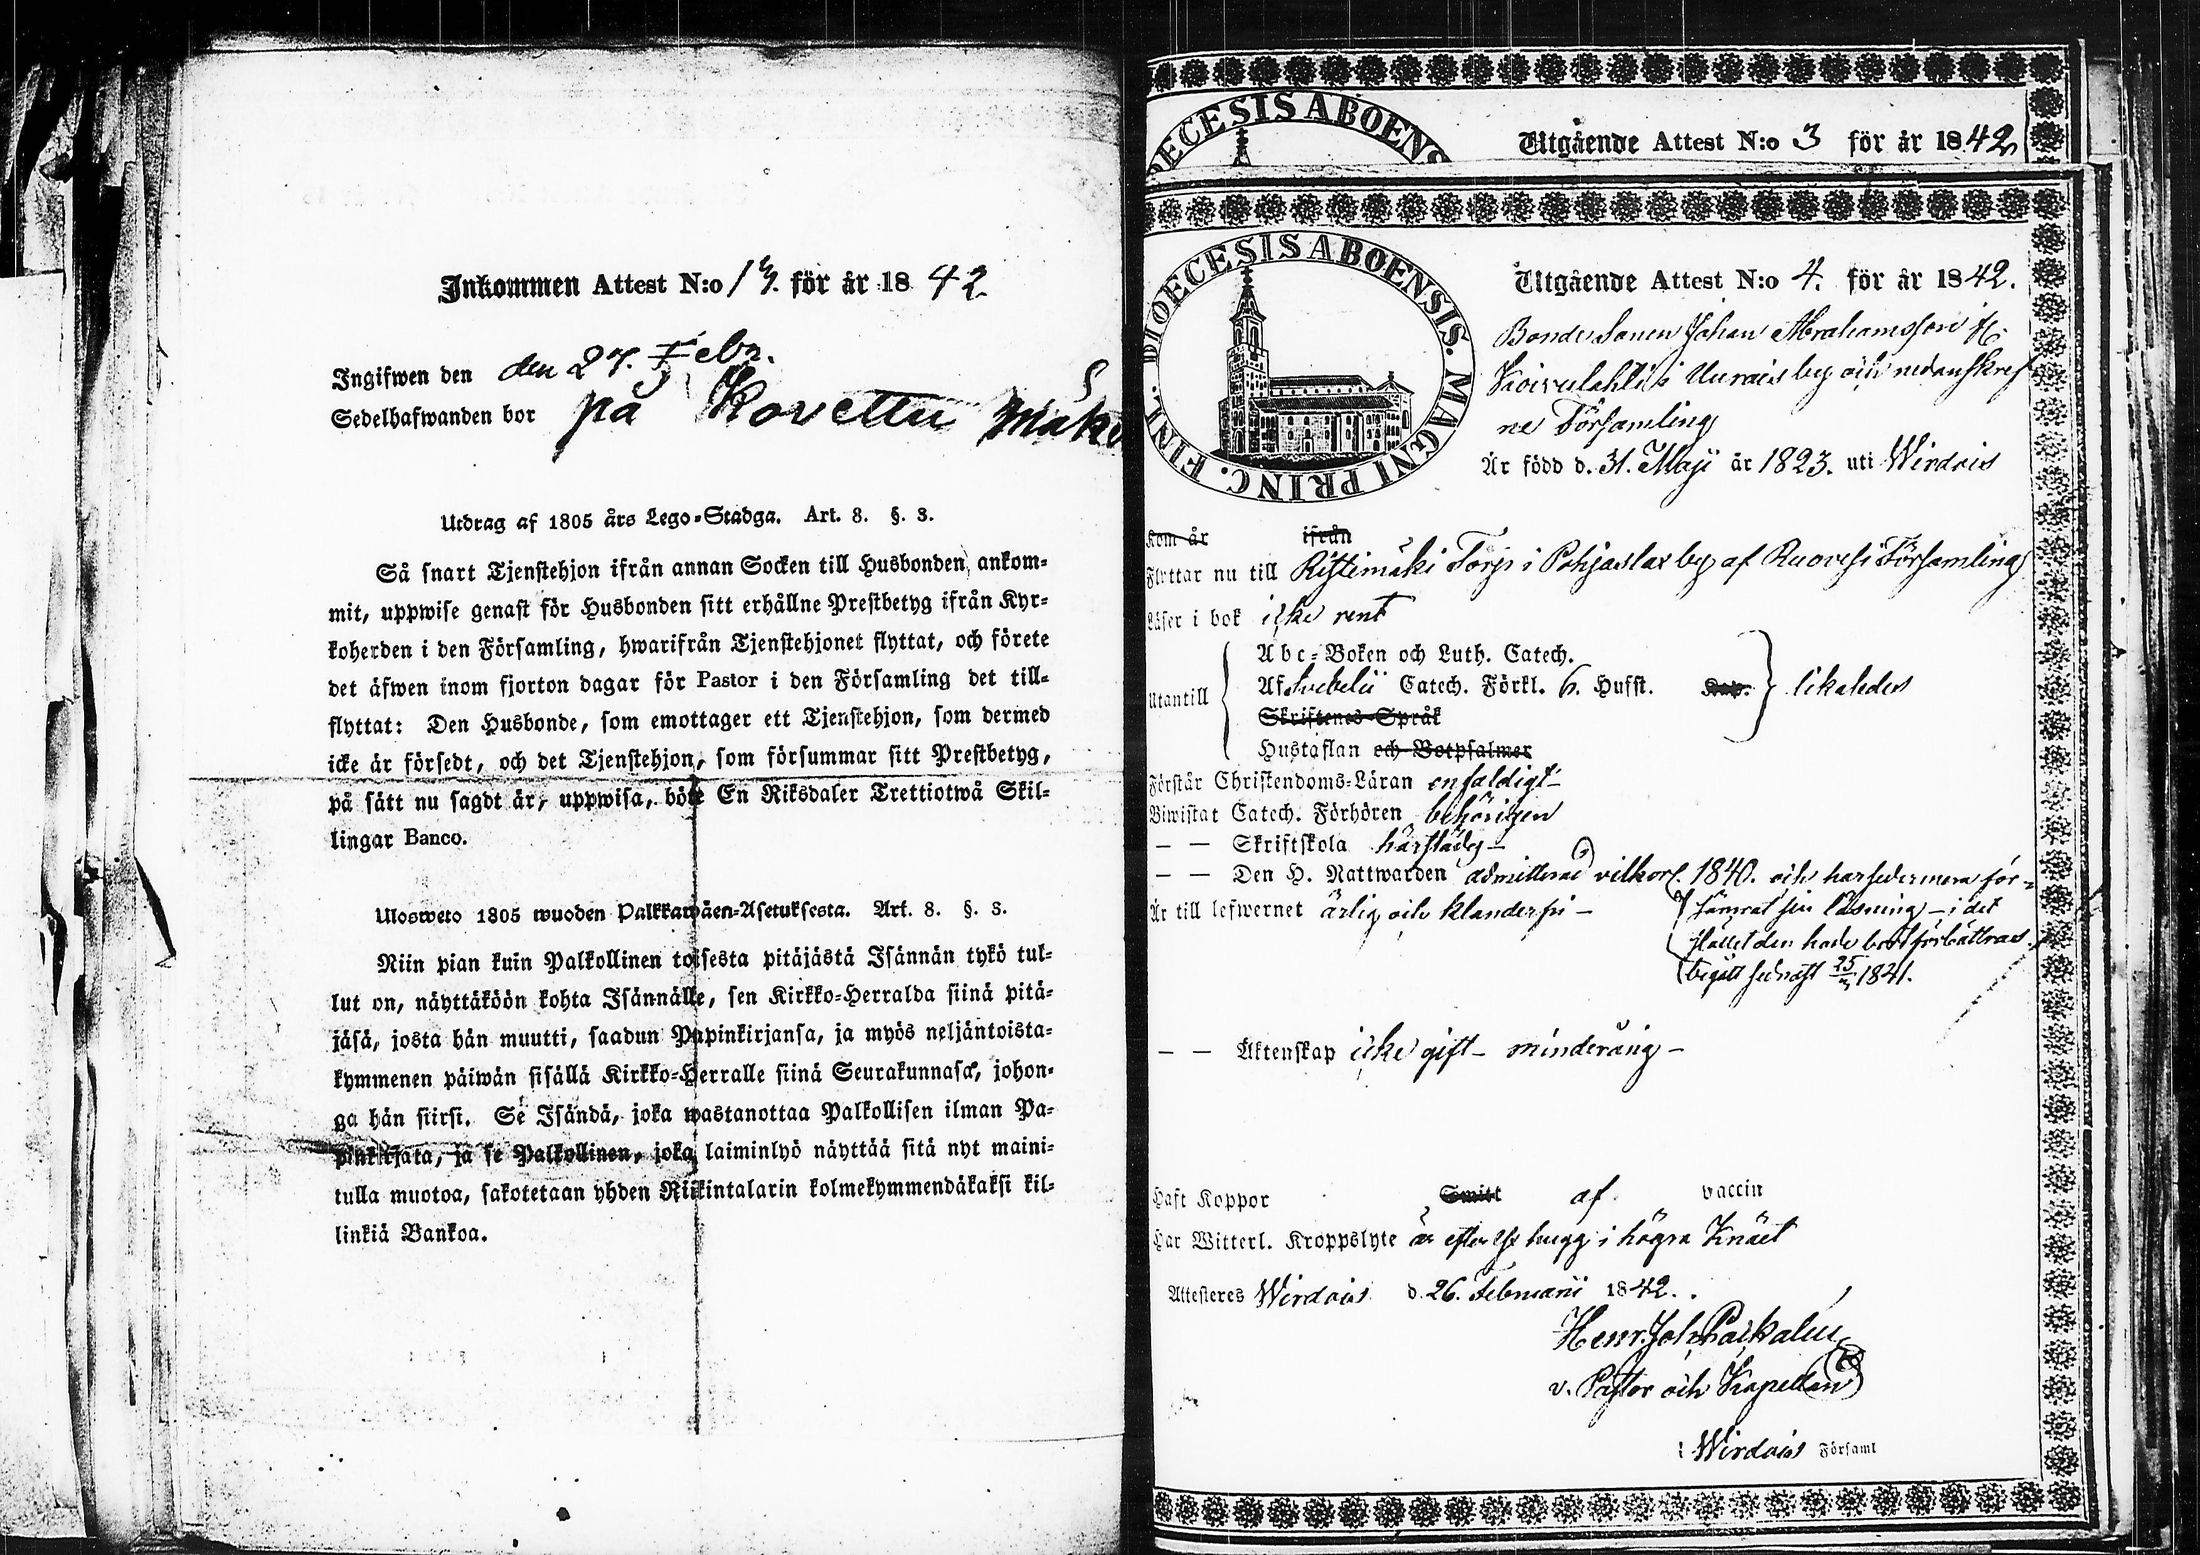 Inkommen Attest N:o för år 18 42
Ingifwen den den 27. Febr.
Sedelhafwanden bor på
Utdrag af 1805 års Lego-Stadga. Art. 8. §. 3.
Så snart Tjenstehjon ifrån annan Socken till Husbonden ankom-
mit, uppwise genast för Husbonden sitt erhållne Prestbetyg ifrån Kyr-
koherden i den Församling, hwarifrån Tjenstehjonet flyttat, och förete
det äfwen inom fjorton dagar för Pastor i den Församling det till-
flyttat: Den Husbonde, som emottager ett Tjenstehjon, som dermed
icke är försedt, och det Tjenstehjon, som försummar sitt Prestbetyg,
på sätt nu sagdt är, uppwisa, böte En Riksdaler Trettiotwå Skil-
lingar Banco.
Ulosweto 1805 wuoden Palkkawäen-Asetuksesta. Art. 8. §. 3.
Niin pian kuin Palkollinen toisesta pitäjästä Isännän tykö tul-
lut on, näyttäköön kohta Isännälle, sen Kirkko-Herralda siinä pitä-
jäsä, josta hän muutti, saadun Papinkirjansa, ja myös neljäntoista-
kymmenen päiwän sisällä Kirkko-Herralle siinä Seurakunnasa, johon-
ga hän siirsi. Se Isändä, joka wastanottaa Palkollisen ilman Pa-
pinkirjata, ja se Palkollinen, joka laiminlyö näyttää sitä nyt maini-
tulla muotoa, sakotetaan yhden Riikintalarin kolmekymmendäkaksi kil-
linkiä Bankoa.
DIOECESIS ABOENS
Utgående Attest N:o 3 för år 1842
DIOECESIS ABOENSIS. MAGNI PRINC. FINL.
Utgående Attest N:o 4. för år 1842.
Bonde Sonen Johan Abrahamsson
Koivulahti i Uurais by och nedanskref
ne Församling
Är född d. 31. Maji år 1823. uti Wirdois
Kom år ifrån
Flyttar nu till Ristimäki Torp i Pohjaslax by af Ruovesi Församling
Läser i bok icke rent
Utantill
Abc-Boken och Luth. Catech.
Af Svebelii Catech. Förkl. 6. Hufst. Kap. likaledes
Skriftenes Språk
Hustaflan och Botpsalmer
Förstår Christendoms-Läran enfaldigt
Biwistat Catech. Förhören behörigen
— — Skriftskola härstädes
— — Den H. Nattwarden admitterad vilkorl. 1840. och har sedermera för-
Är till lefwernet ärlig och klanderfri –
sämrat sin läsning – i det
stället den hade bort förbättras
begått sednast 1841.
— — Äktenskap icke gift – minderårig –
Haft Koppor Smitt af vaccin
Har Witterl. Kroppslyte är efter hugg i högra Knäet
Attesteres Wirdois d. 26. Februarii 1842.
Henr. Joh.
v. Pastor och Kapellan
i Wirdois Församl